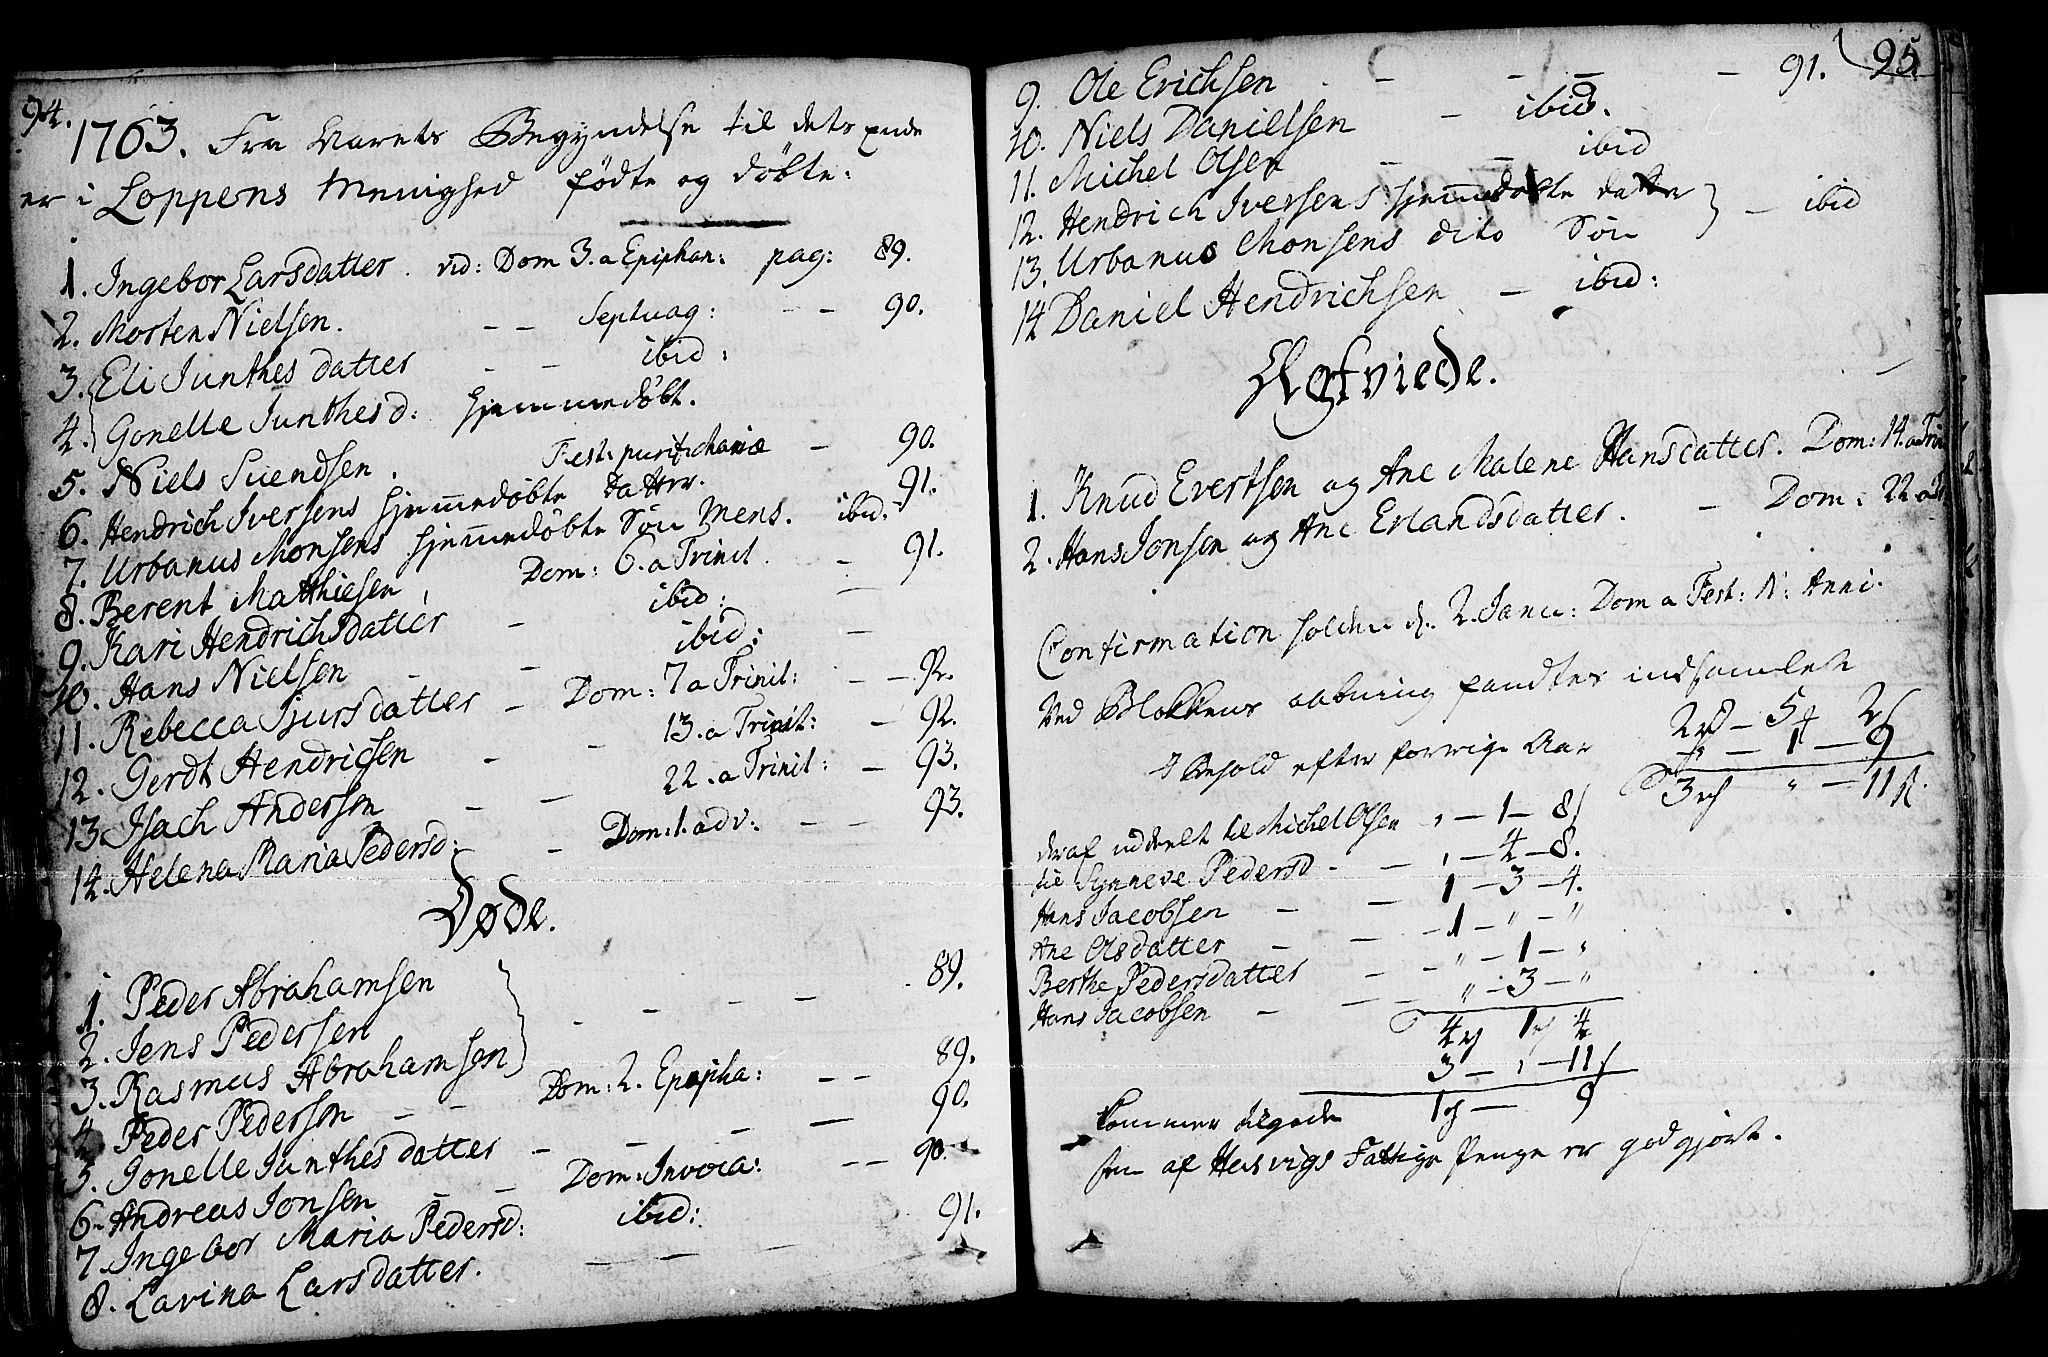 94.
1763. Fra Aarets Begyndelse til dets Ende
er i Loppens Menighed fødte og døbte:
1. Ingebor Larsdatter. vid: Dom 3. a Epiphan: pag: 89.
2. Morten Nielsen. — — Septuag: — — 90.
3. Eli Iunthes datter — — ibid:
4. Gonelle Iunthesd: hjemmedøbt.
5. Niels Suendsen. Fest: purif: Mariæ — 90.
6. Hendrich Iversens hjemmedøbte Datter. 91.
7. Urbanus Monsens hjemmedøbte Søn Mens. ibid.
8. Berent Matthiesen, Dom: 6. a Trinit. — 91.
9. Kari Hendrichsdatter — ibid: —
10. Hans Nielsen — — ibid: —
11. Rebecca Siursdatter — Dom: 7 a Trinit: — — 92.
12. Gerdt Hendricsen — — 13. a Trinit: — 92.
13 Isach Andersen — — 22. a Trinit: — 93.
14. Helena Maria Pedersd: — Dom: 1. adv: — — 93.
Døde.
1. Peder Abrahamsen
2. Iens Pedersen — — — — 89.
3. Rasmus Abrahamsen
4. Peder Pedersen — — Dom: 2. Epipha: — — 89.
5. Gonelle Iunthesdatter — — — — 90.
6. Andreas Ionsen — — Dom: Invoca: — — 90.
7. Ingebor Maria Pedersd: ibid:
8. Lavina Larsdatter. — — — 91.
95
9. Ole Erichsen — — — — 91.
10. Niels Danielsen — ibid.
11. Michel Olsen — — ibid
12. Hendrich Iversens hjemmedøbte datter
13. Urbanus Monsens dito Søn — ibid
14 Daniel Hendrichsen — ibid:
Ægtviede.
1. Knud Evertsen og Ane Malene Hansdatter. Dom: 14. a Trin
2. Hans Ionsen og Ane Erlandsdatter. — Dom: 22 a
Confirmation holden d. 2. Ianu: Dom a Fest: N: Anni.
Ved Blokkens aabning fandtes indsamlet
2 — 5 2
I Behold efter forrige Aar — 1 — 9
3 " — 11
deraf uddeelt til Michel Olsen , — 1 — 8
til Synneve Pedersd — — , — 4 — 8.
Hans Iacobsen — — 1 — 3 — 4.
Ane Olsdatter — — 1 — " — "
Berthe Pedersdatter — — " — 1 — "
Hans Iacobsen — — " — 3 — "
4 1 4
3 — , — 11
kommer tilgode 1 — 9
som af Hersvigs Fattige Penge er godgjort.